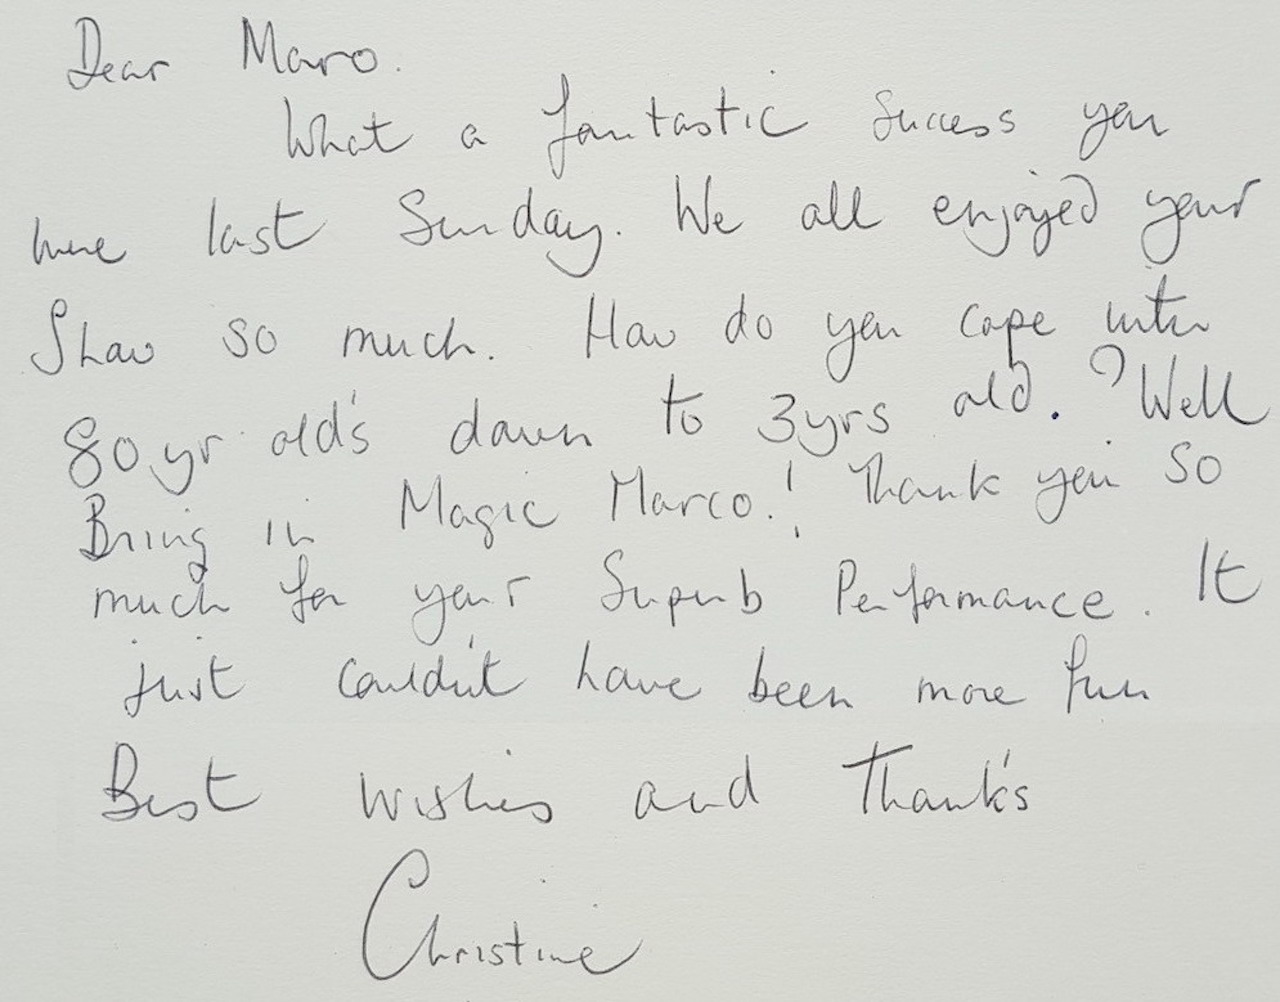 Dear Maro.
What a fantastic success you
were last Sunday. We all enjoyed your
Show so much. How do you cope with
80 yr old's down to 3yrs old. ? Well
Bring in Magic Marco.! Thank you so
much for your Superb Performance. It
just couldn't have been more fun
Best wishes and Thank's
Christine